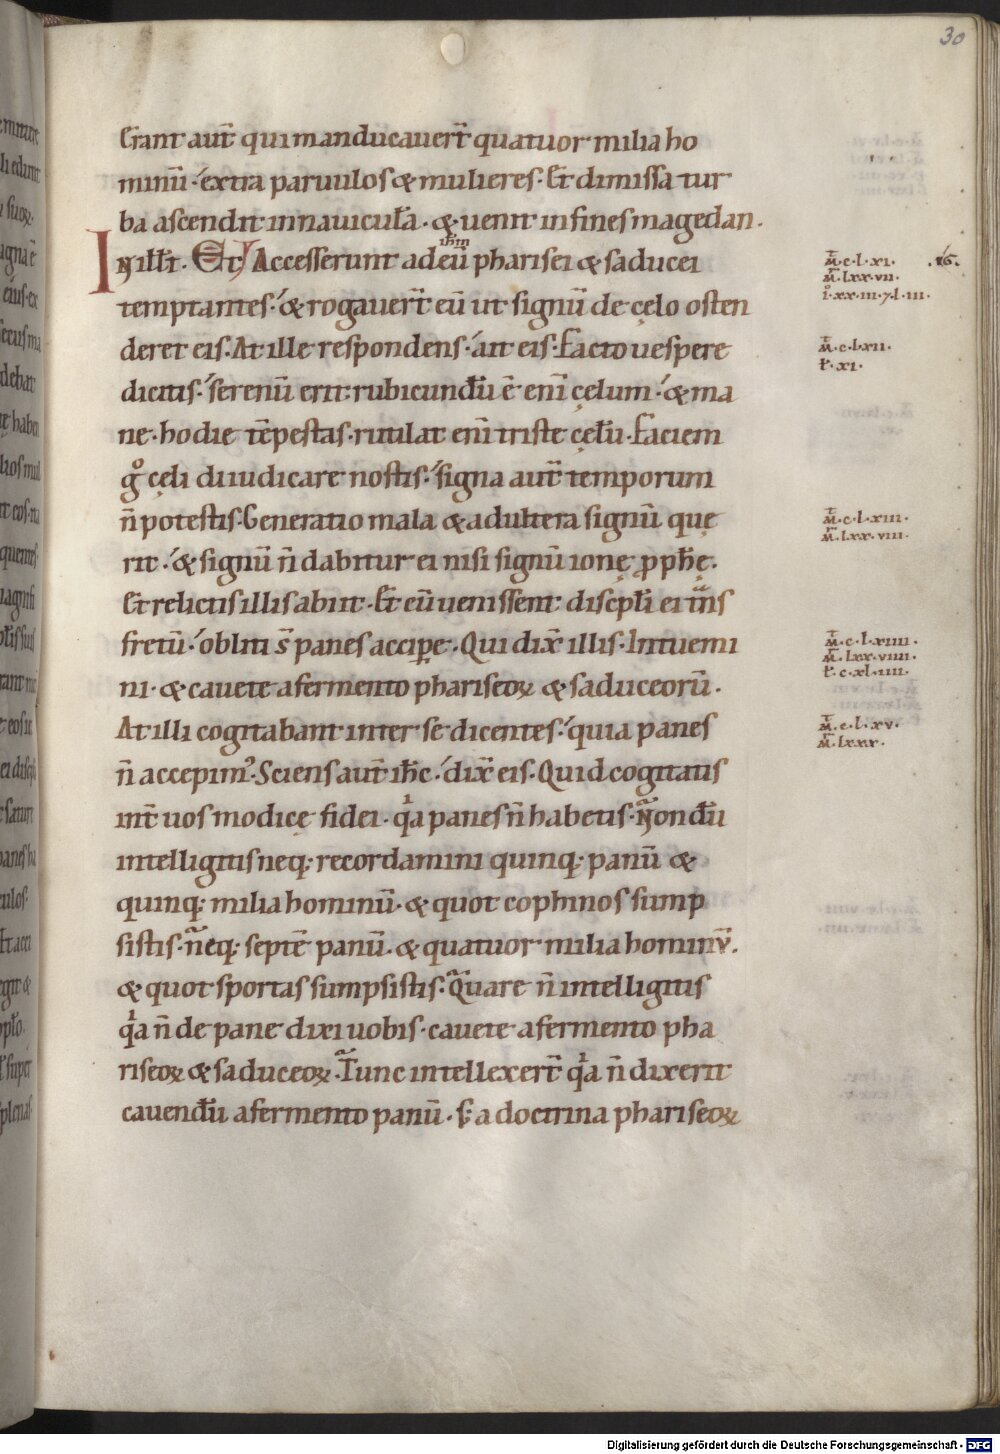 30
Erant aut̄ qui manducauer̄t quatuor milia ho
minū extra paruulos & mulieres. Et dimissa tur
ba ascendit in nauicul̄a. & uenit in fines magedan.
In ill̄t. Et Accesserunt ad eū ihm̄ pharisei & saducei
temptantes. & rogauer̄t eū ut signū de cęlo osten
deret eis. At ille respondens. ait eis. Facto uespere
dicitis. serenū erit. rubicundū ē eni̅ cęlum. & ma
ne. hodie tēpestas. rutilat eni̅ triste cęlū. Faciem
gͦ cęli diiudicare nostis. signa aut̄ temporum
n̄ potestis. Generatio mala & adultera signū quę
rit. & signū n̄ dabitur ei nisi signū ionę ꝓph̄ę.
Et relictis illis abiit. Et cū uenissent discipl̄i ei tn̄s
fretū. obliti s̄ panes accip̱e. Qui dix̄ illis. Intuemi
ni. & cauete a fermento phariseoꝝ & saduceorū.
At illi cogitabant inter se dicentes. quia panes
n̄ accepimꝰ. Sciens aut̄ ih̄c. dix̄ eis. Quid cogitatis
int̄ uos modicę fidei. qͥa panes n̄ habetis. Nondū
intelligitis neq; recordamini quinq; panū &
quinq; milia hominū. & quot cophinos sump
sistis. neq; septē panū. & quatuor milia hominv̄.
& quot sportas sumpsistis. Quare n̄ intelligitis
qͥa n̄ de pane dixi uobis. cauete a fermento pha
riseoꝝ & saduceoꝝ. Tunc intellexer̄t qͥa n̄ dixerit
cauendū a fermento panū. s; a doctrina phariseoꝝ
m̄.c.l.xi. .16.
m̄.lxx.vii.
i̊.xx.iii.7.l.iii.
m̄.c.l.xii.
l̄.xi.
m̄.c.l.xiii.
m̄.lxx.viii.
m̄.c.l.xiiii.
m̄.lxx.viiii.
l̄.c.xl.iiii.
m̄.c.l.xv.
m̄.lxxx.
Digitalisierung gefördert durch die Deutsche Forschungsgemeinschaft - DFG